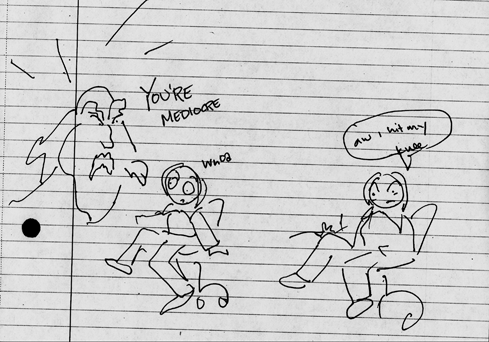 YOU'RE
MEDIOCRE
WHOA
aw, i hit my
knee